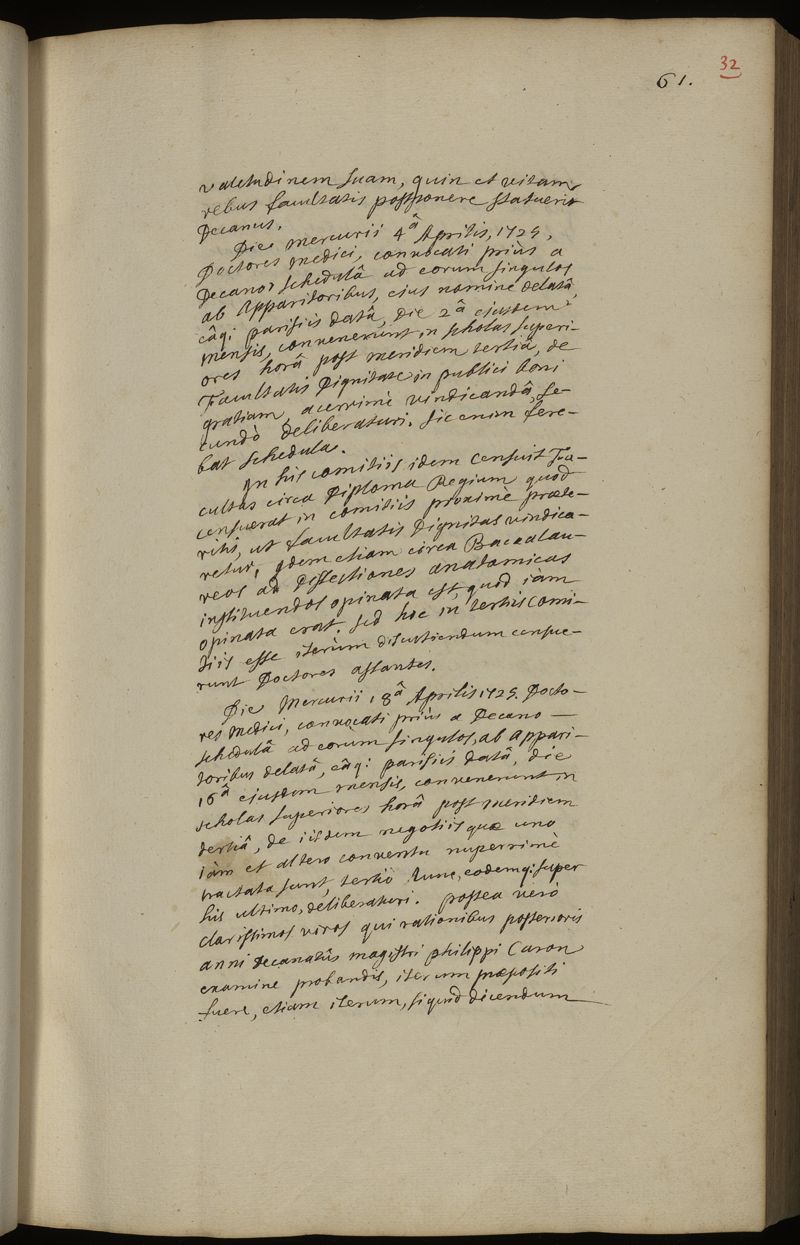 32
61.
valetudinem suam, quin et vitam
rebus facultatis postponere statuerit
Decanus.
Die mercurii 4â Aprilis, 1725,
Doctores medici, convocati priùs a
Decano, schedulâ ad eorum singulos
ab Apparitoribus, ejus nomine delatâ,
câq; parisiis datâ, die 2â ejusdem
mensis, convenerunt in scholas superi-
ores horâ post meridiem tertiâ, de
Facultatis Dignitate in publici boni
gratiam, acerrimè vindicandâ, se-
cundò deliberaturi. sic enim fere-
bat schedula.
In his comitiis idem censuit Fa-
cultas circa Diploma Regium quod
censuerat in comitiis proximè præte-
ritis, ut facultatis Dignitas vindica-
retur, qdem etiam circa Baccalau-
reos ad Dissectiones anatomicas
instituendos opinata est, quod iàm
opinata erat. sed hoc in tertiis comi-
tiis esse iterùm discutiendum censue-
runt Doctores astantes.
Die Mercurii 18â Aprilis 1725. Docto-
res medici, convocati priùs a Decano —
schedulâ ad eorum singulos, ab appari-
toribus delatâ, câq; parisiis datâ, die
16â ejusdem mensis, convenerunt in
scholas superiores horâ post meridiem
tertiâ, de iisdem negotiis quæ uno
iàm et altero conventu nuperrimè
tractata sunt, tertiò tunc, eodemq; super
his ultimo, deliberaturi. postea verò
clarissimos viros qui rationibus posterioris
anni Decanatûs magistri philippi Caron
examine probandis, iterum præpositi
fuere, etiam iterum, siquid dicendum